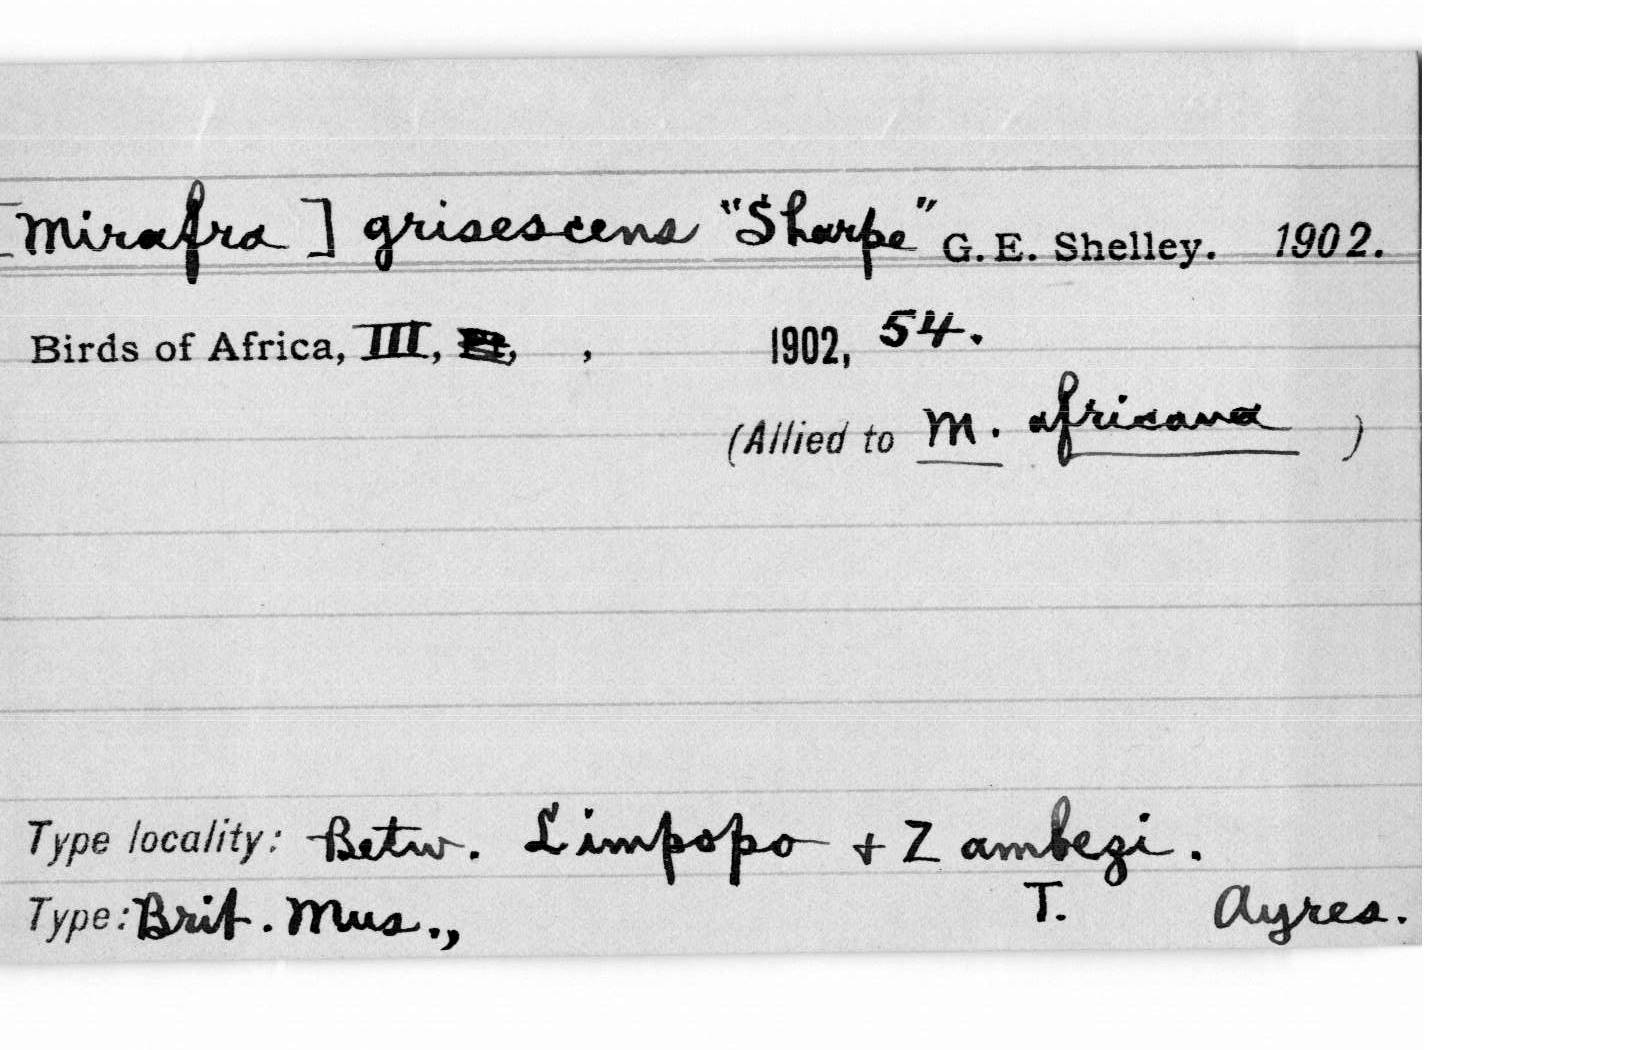 [Mirafra] grisescens "Sharpe" G. E. Shelley. 1902.
Birds of Africa, III, , 1902, 54.
(Allied to M. africana )
Type locality: Betw. Limpopo + Zambezi.
Type: Brit. Mus., T. Ayres.